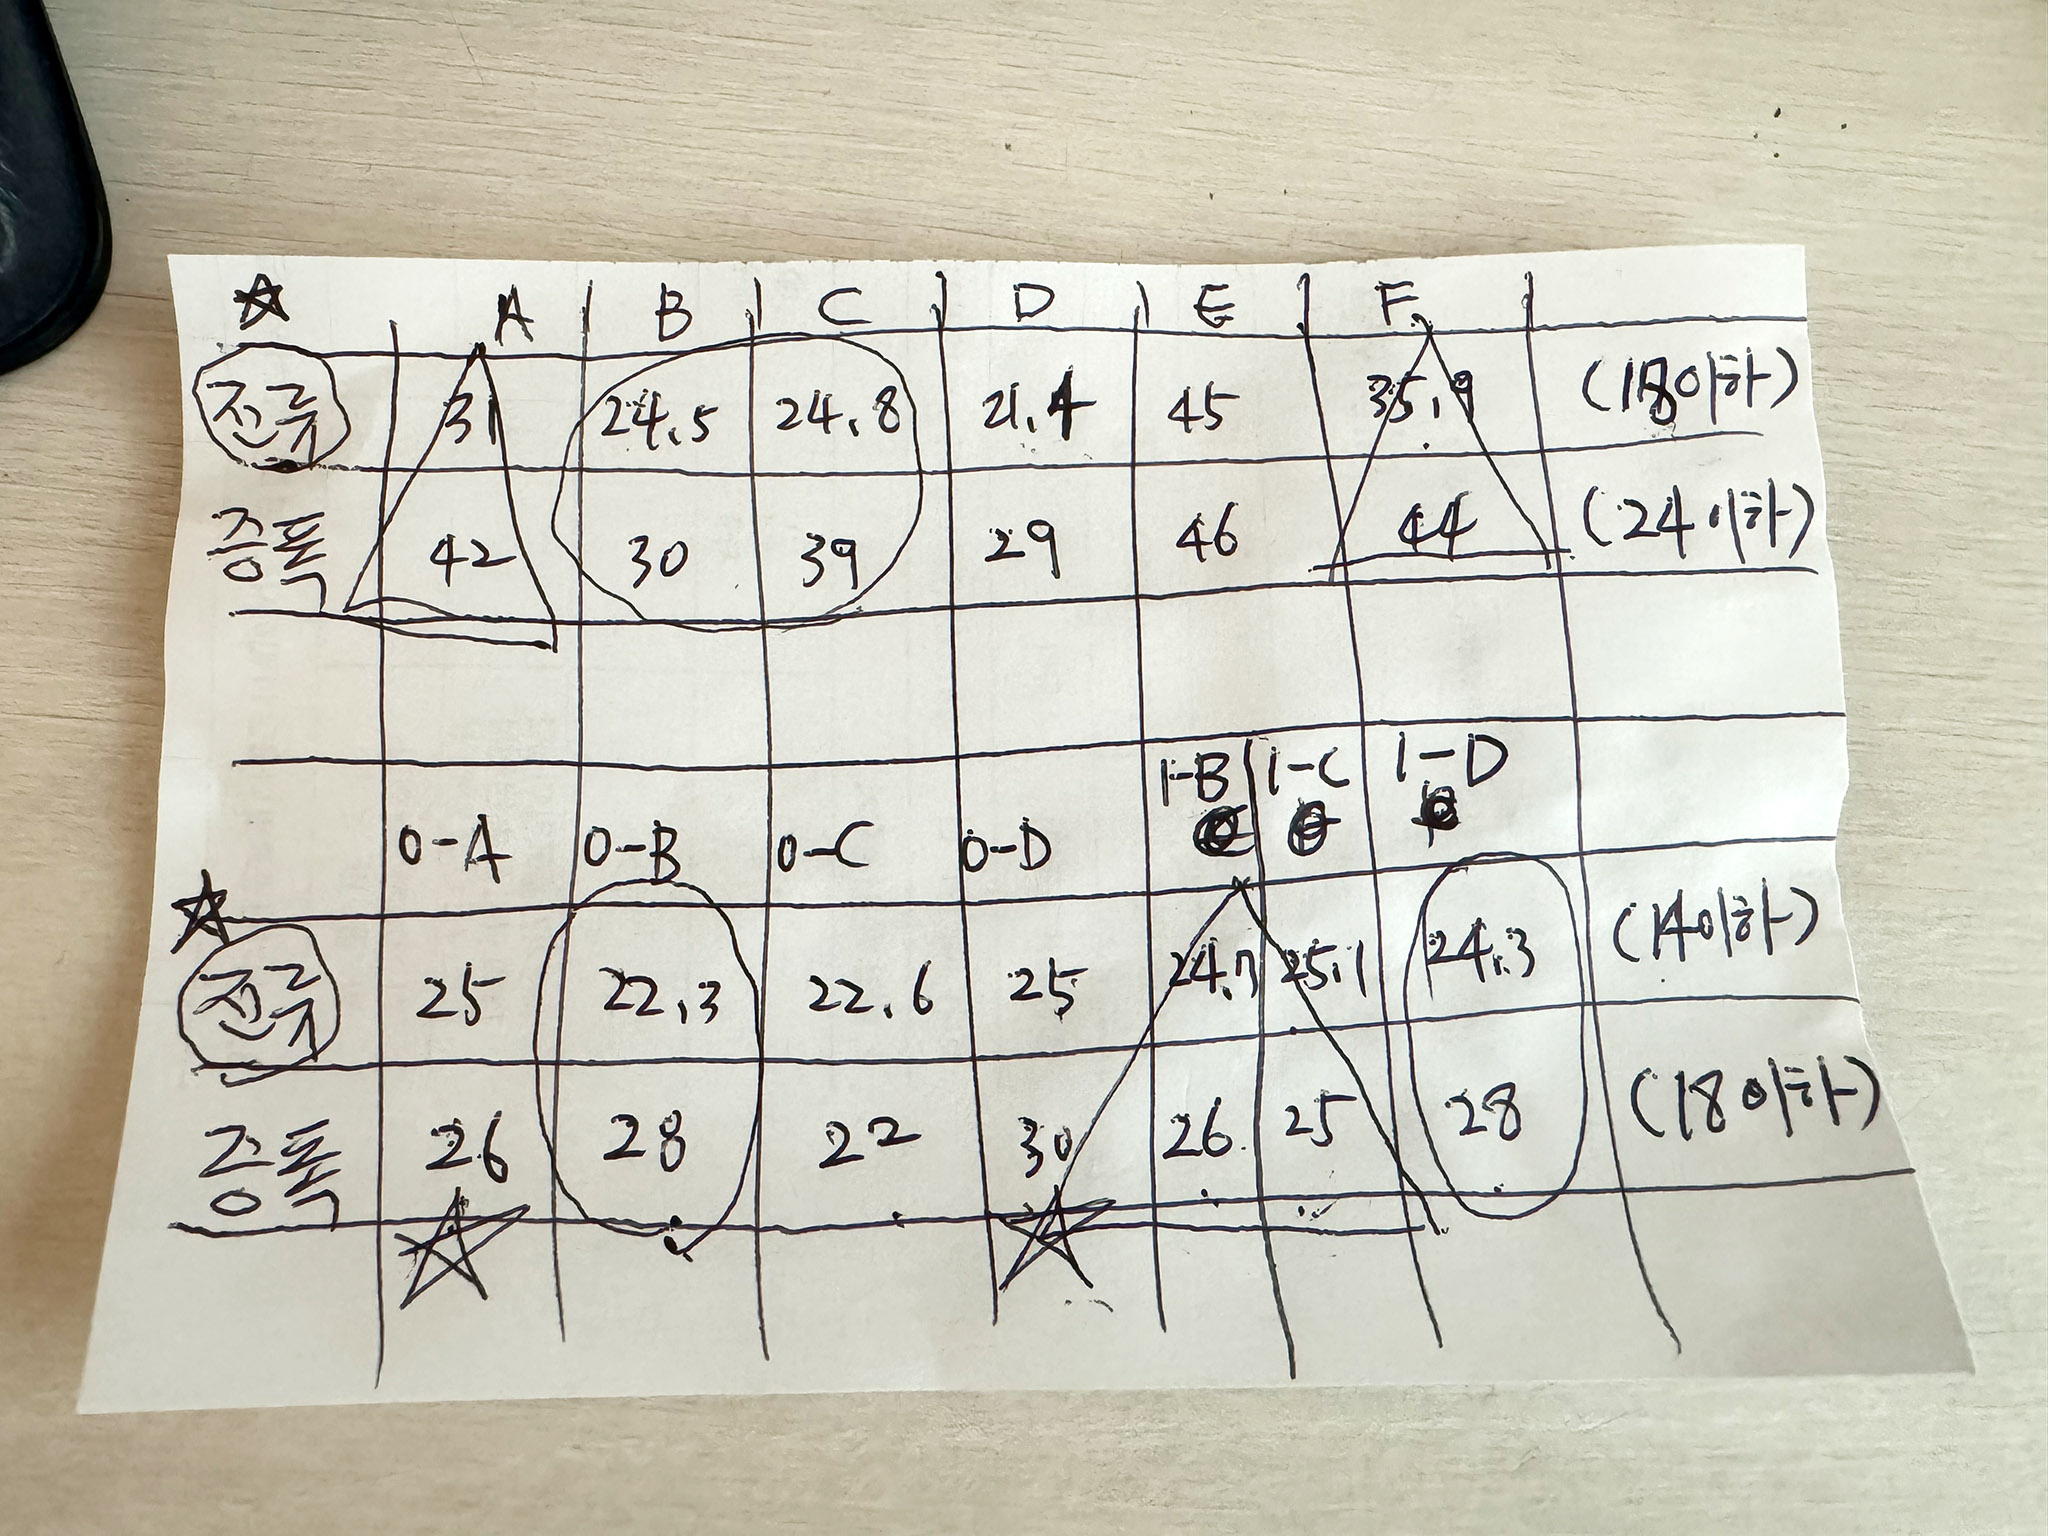 A B C D E F
진류 31 24.5 24.8 21.4 45 35.9 (18이하)
증폭 42 30 39 29 46 44 (24이하)
1-B 1-C 1-D
0-A 0-B 0-C 0-D
진류 25 22.3 22.6 25 24.7 25.1 24.3 (14이하)
증폭 26 28 22 30 26 25 28 (18이하)